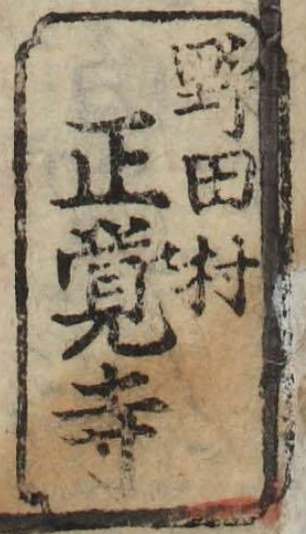 野田村
正覚寺